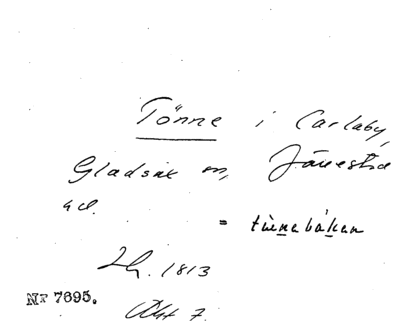 Tönne i Carlaby,
Gladsax sn, Järrestad
hd.
= tùnnebáken
Lh. 1813
Nr 7695. Akt 7.